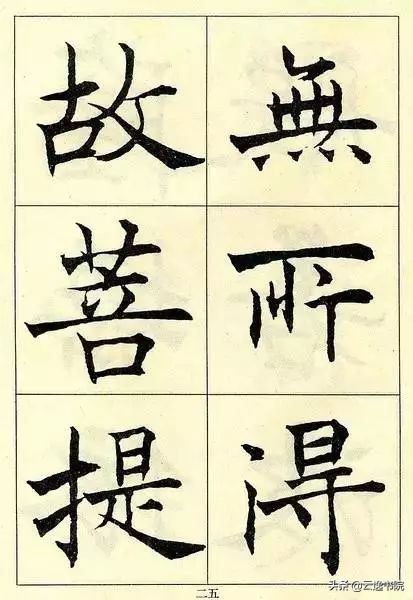 無所得
故菩提
二五
头条@云逸书院